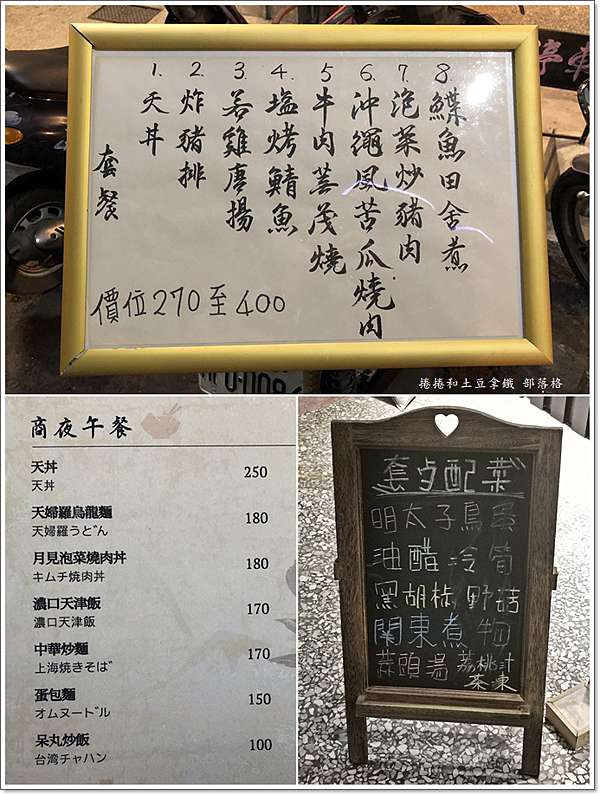 1. 天丼
2. 炸豬排
3. 若雞唐揚
4. 塩烤鯖魚
5 牛肉蒸茂燒
6. 沖繩風苦瓜燒肉
7. 泡菜炒豬肉
8. 鰈魚田舍煮
套餐
價位270至400
捲捲和土豆拿鐵 部落格
商夜午餐
天丼 250
天丼
天婦羅烏龍麵 180
天婦羅うどん
月見泡菜燒肉丼 180
キムチ焼肉丼
濃口天津飯 170
濃口天津飯
中華炒麵 170
上海焼きそば
蛋包麵 150
オムヌードル
呆丸炒飯 100
台湾チャハン
套歺配菜
明太子鳥蛋
油醋冷筍
黑胡椒野菇
関東煮物
蒜頭湯 荔桃汁
茶凍